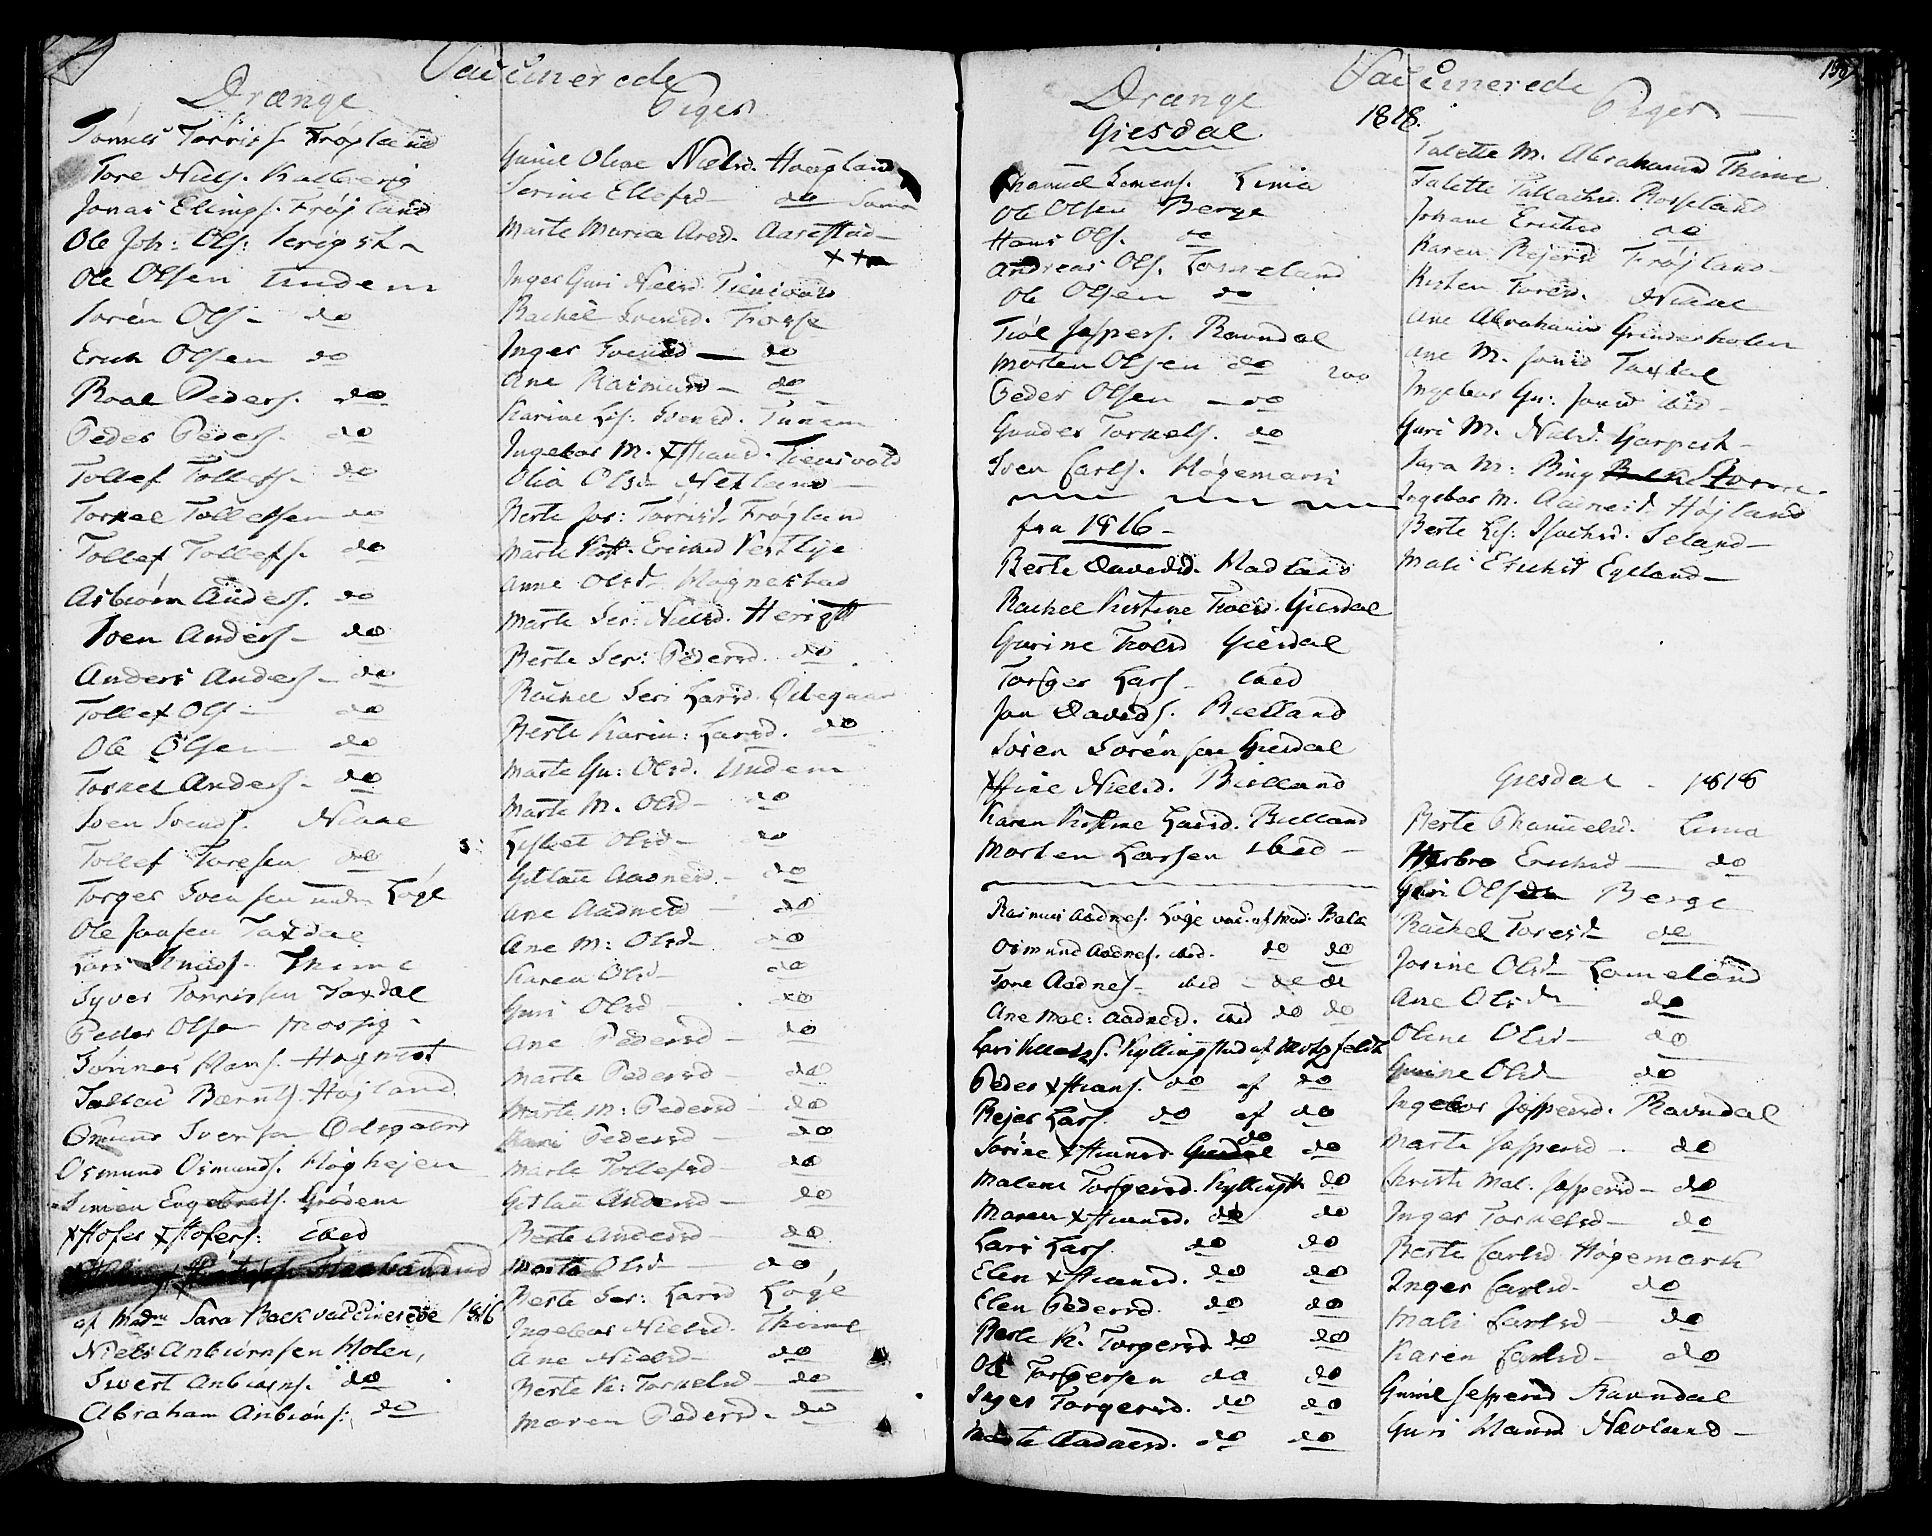 Vaccinerede
Drænge
Tønnes Tørriss. Frøyland
Tore Niels. Kalberig
Jonas Ellings. Frøjland
Ole Joh: Ols: Serigst
Ole Olsen Undem
Sorén Ols - do
Erich Olsen do
Roal Peders. do
Peder Peders. do
Tollef Tollefs. do
Torkel Tollefsen do
Tollef Tollefs. do
Asbiørn Anders. do
Sven Anders - do
Anders Anders - do
Tollef Ols - do
Ole Olsen do
Torkel Anders - do
Sven Svends. Niaae
Tollef Toresen do
Torger Svensen Løge
Ole Jansen Taxdal
Lars Knuds. Thime
Syver Tørrissen Taxdal
Peder Olsen Mossig -
Tønnes Hans. Hognest
Tallac Bærnts. Højland
Omund Svensen Ødegaard
Osmund Osmunds. Høghejen
Simen Engebrets. Grødem
Xstofer Xstofers: ibid
af Madm Sara Back vaccinerede 1816
Niels Anbiørnsen Molen,
Sivert Anbiørns. do
Abraham Anbiøns: do
Piger
Gunil Oline Nielsd. Haagland
Serine Ellefsd - do
Marte Maria Aresd. Aarestad -
Inger Guri Nielsd Tiensvold
Rachel Svensd. Fosse
Inger Svensd - do
Ane Rasmusd - do
Karine Lis: Svensd. Tunem
Ingebor M. Xstiansd. Tiensvold
Olia Olsd - Netland -
Berte Jos: Tørrisd. Frøyland
Marte Erichsd Vestlye
Anne Olsd Mognestad
Marte Ser: Nielsd. Herigst
Berte Ser: Pedersd. do
Rachel Ser: Larsd. Ødegaar
Berte Karin: Larsd. do
Marte Gu: Olsd. Undem
Marte M. Olsd - do
Lisbet Olsd - do
Gitlau Aadnesd - do
Ane Aadnesd - do
Ane M: Olsd do
Karen Olsd - do
Guri Olsd - do
Ane Pedersd - do
Marte Pedersd - do
Marte M: Pedersd do
Kari Pedersd - do
Marte Tollefsd - do
Gitlau Andersd - do
Berte Andersd - do
Marta Olsd - do
Berte Ser: Larsd Løge
Ingebor Nielsd. Thime
Ane Nielsd - do
Berte K: Torkelsd - do
Maren Pedersd - do
Vaccinerede
1818.
Drænge
Giesdal
Thamuel Simens. Lima
Ole Olsen Berge
Hans Ols. do
Andreas Ols. Lomeland
Ole Olsen do
Tiøl Jespers. Ravndal
Morten Olsen do
200
Peder Olsen - do
Gunder Torkels. do
Sven Carls. Høgemark
fra 1816 -
Berte Davidsd. Madland
Rachel Kirstine Troelsd. Giesdal
Gurine Troelsd Giesdal
Torger Lars - ibid
Jon Davids. Bielland
Søren Sorénsen Giesdal
Xstine Nielsd. Bielland
Karen Kirstine Larsd. Bielland
Morten Larsen ibid -
Rasmus Aadnes. Løge vac: af Mad: Balk
Osmund Aadnes. ibid. do do
Tore Aadnes - ibid - do do
Ane Mal: Aadnesd. ibid do do
Lars Kyllingstad af Motzfeldt
Peder Xstians. do af do
Rejer Lars. do af do
Sørine Xstiansd do do
Malene Torgersd. Kyllingst do
Maren Xstiansd. do do
Lars Lars. do do
Elen Xstiansd. do do
Elen Pedersd. do do
Berte K. Torgersd do do
Ole Torgersen do do
Inger Torgersd. do do
Marte Aadnesd. do do
Piger -
159
Talette M. Abrahamsd Thime
Talette Tallachsd. Rosseland
Johane Erichsd do
Karen Rejersd Frøjland -
Kirsten Toresd. Niaae
Ane Abrahamsd Grinderholen
Ane M. Jonsd Taxdal
Ingebor Gu: Jonsd ibid -
Guri M. Nielsd. Garpest -
Sara M: Ring
Ingebor M. Aanesd. Højland
Berte Lis: Isachsd. Seland -
Mali Erichsd Egeland -
Giesdal - 1818
Berte Thamuelsd. Lima
Herbro Erichsd - do
Guri Olsd Berge
Rachel Toresd do
Josine Olsd - Lomeland
Ane Olsd do
Oline Olsd - do
Gurine Olsd do
Ingebor Jespersd. Ravndal
Marte Jespersd - do
Kirsti Mal: Jespersd - do
Inger Torkelsd - do
Berte Carlsd Høgemark
Inger Carlsd. do
Mali Carlsd - do
Karen Carlsd - do
Gunil Jespersd Ravndal
Guri Hansd Nævland -